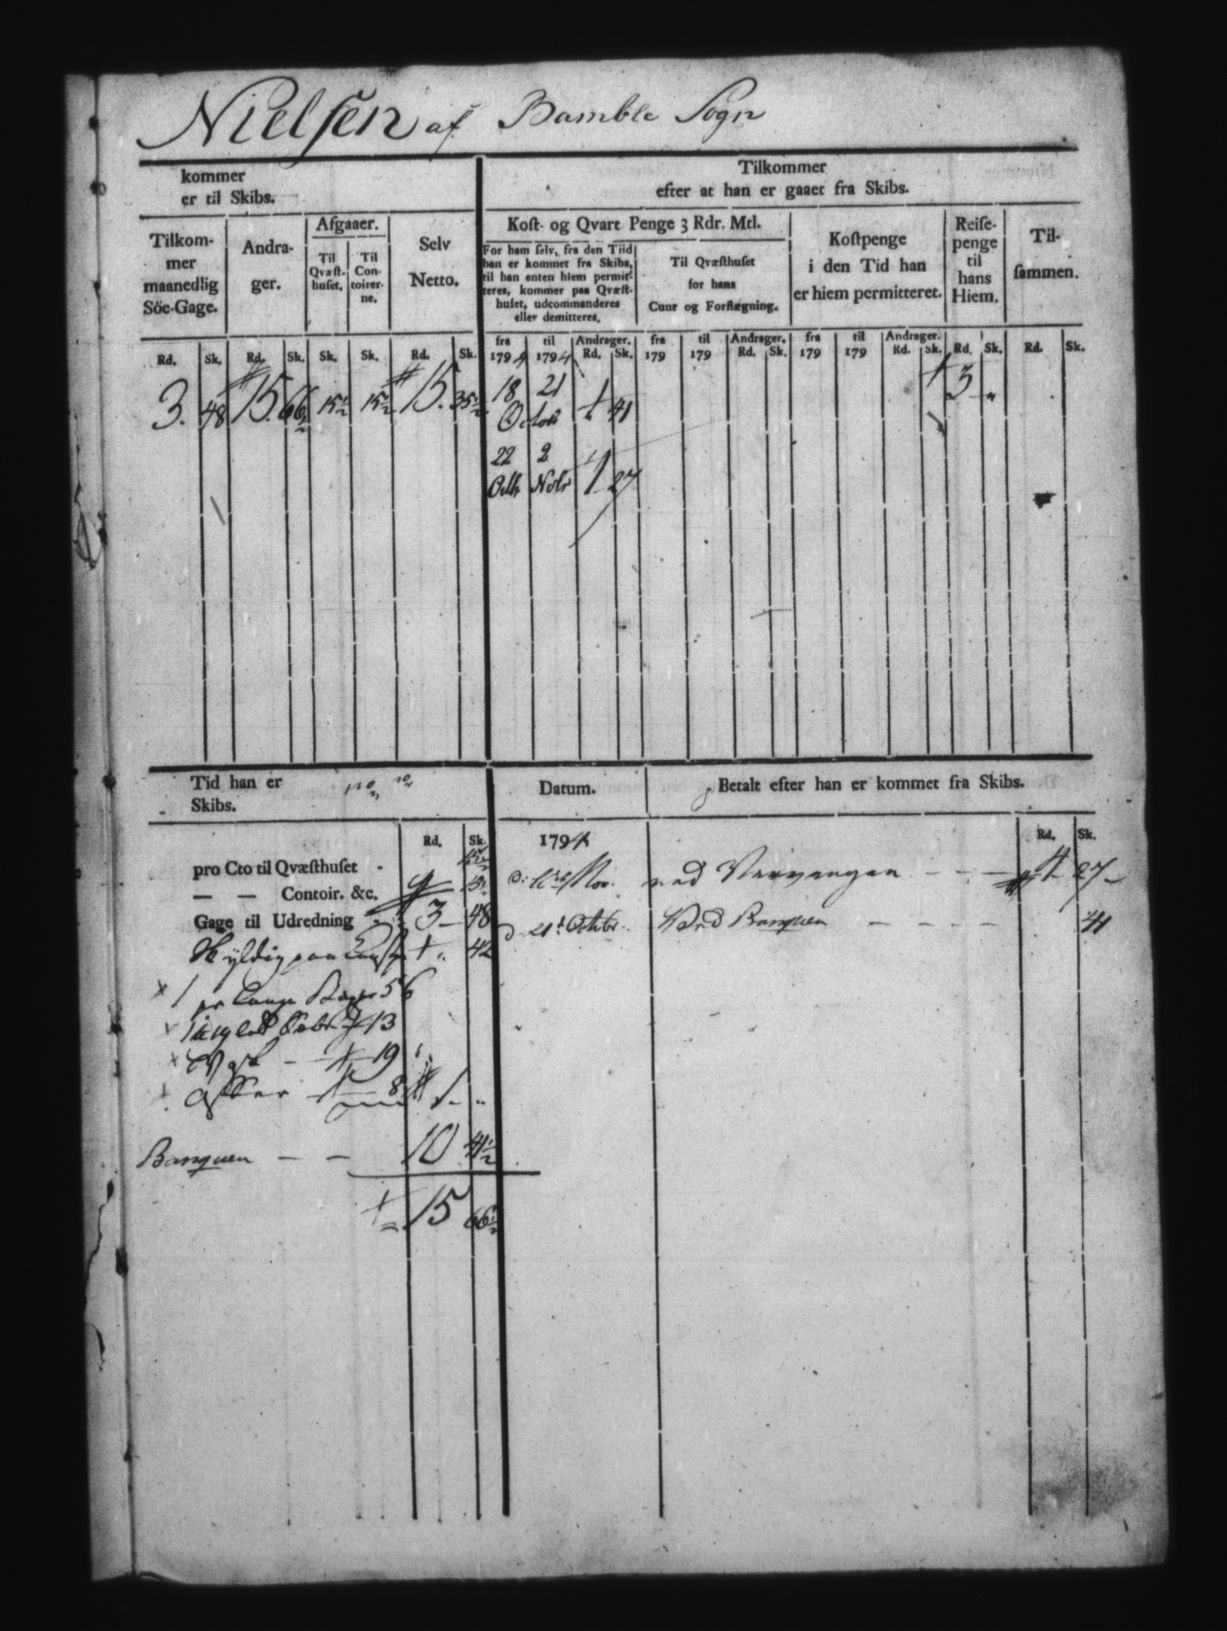 Nielsen af Bamble Sogn
kommer
er til Skibs.
Tilkommer
efter at han er gaaet fra Skibs.
Tilkom-
mer
maanedlig
Söe-Gage.
Andra-
ger.
Afgaaer.
Til
Qvæst-
huset.
Til
Con-
toirer-
ne.
Selv
Netto.
Kost- og Qvart Penge 3 Rdr. Mtl.
For ham selv, fra den Tiid
han er kommet fra Skibs,
til han enten hiem permit-
teres, kommer paa Qvæst-
huset, udcommanderes
eller demitteres.
Til Qvæsthuset
for hans
Cuur og Forflægning.
Kostpenge
i den Tid han
er hiem permitteret.
Reise-
penge
til
hans
Hiem.
Til-
sammen.
Rd. Sk. Rd. Sk. Sk. Sk. Rd. Sk.
fra 1794 til 1794 Andrager. Rd. Sk.
fra 179 til 179 Andrager. Rd. Sk.
fra 179 til 179 Andrager. Rd. Sk.
Rd. Sk. Rd. Sk.
3. 48 15. 66½ 15½ 15½ 15. 35½
18 21
Octob 41
3
22 2
Octbr Nobr 1 27
Tid han er
Skibs.
Datum.
Betalt efter han er kommet fra Skibs.
Rd. Sk. 1794 Rd. Sk.
pro Cto til Qvæsthuset -
— — Contoir. &c.
Gage til Udredning 3 — 48
Skyldig paa 42
56
13
19
8 1
Banquen — — 10 41½
15 66½
Nov. ved 27
d 21 Octbr. Ved Banquen — — — — 41